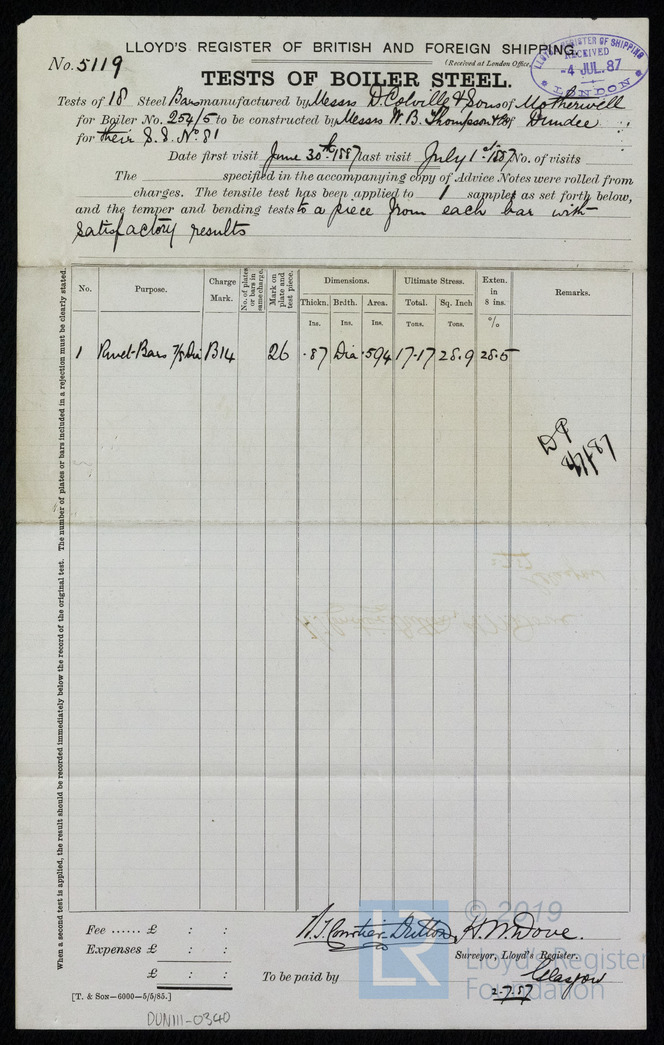 LLOYD'S REGISTER OF BRITISH AND FOREIGN SHIPPING.
No. 5119
(Received at London Office,
LLOYD'S REGISTER OF SHIPPING
RECEIVED
-4 JUL. 87
LONDON
TESTS OF BOILER STEEL.
Tests of 18 Steel Bars manufactured by Messrs D. Colville & Sons of Motherwell
for Boiler No. 254/5 to be constructed by Messrs W. B. Thompson & Co of Dundee
for their S.S. No 81
Date first visit June 30th 1887 last visit July 1st 1887 No. of visits
The specified in the accompanying copy of Advice Notes were rolled from
charges. The tensile test has been applied to 1 samples as set forth below,
and the temper and bending tests to a piece from each bar with
satisfactory results
When a second test is applied, the result should be recorded immediately below the record of the original test. The number of plates or bars included in a rejection must be clearly stated.
No. Purpose. Charge Mark. No. of plates or bars in same charge. Mark on plate and test piece. Dimensions. Ultimate Stress. Exten. in 8 ins. Remarks.
Thickn. Brdth. Area. Total. Sq. Inch
Ins. Ins. Ins. Tons. Tons. %
1 Rivet-Bars 7/8 Dia B14 26 .87 Dia .594 17.17 28.9 28.5
DP
4/7/87
Fee ...... £ : :
Expenses £ : :
£ : :
H. W. Dove.
Surveyor, Lloyd's Register.
To be paid by
Glasgow
2.7.87
[T. & Son—6000—5/5/85.]
DUN111-0340
LR
© 2019
Lloyd's Register
Foundation